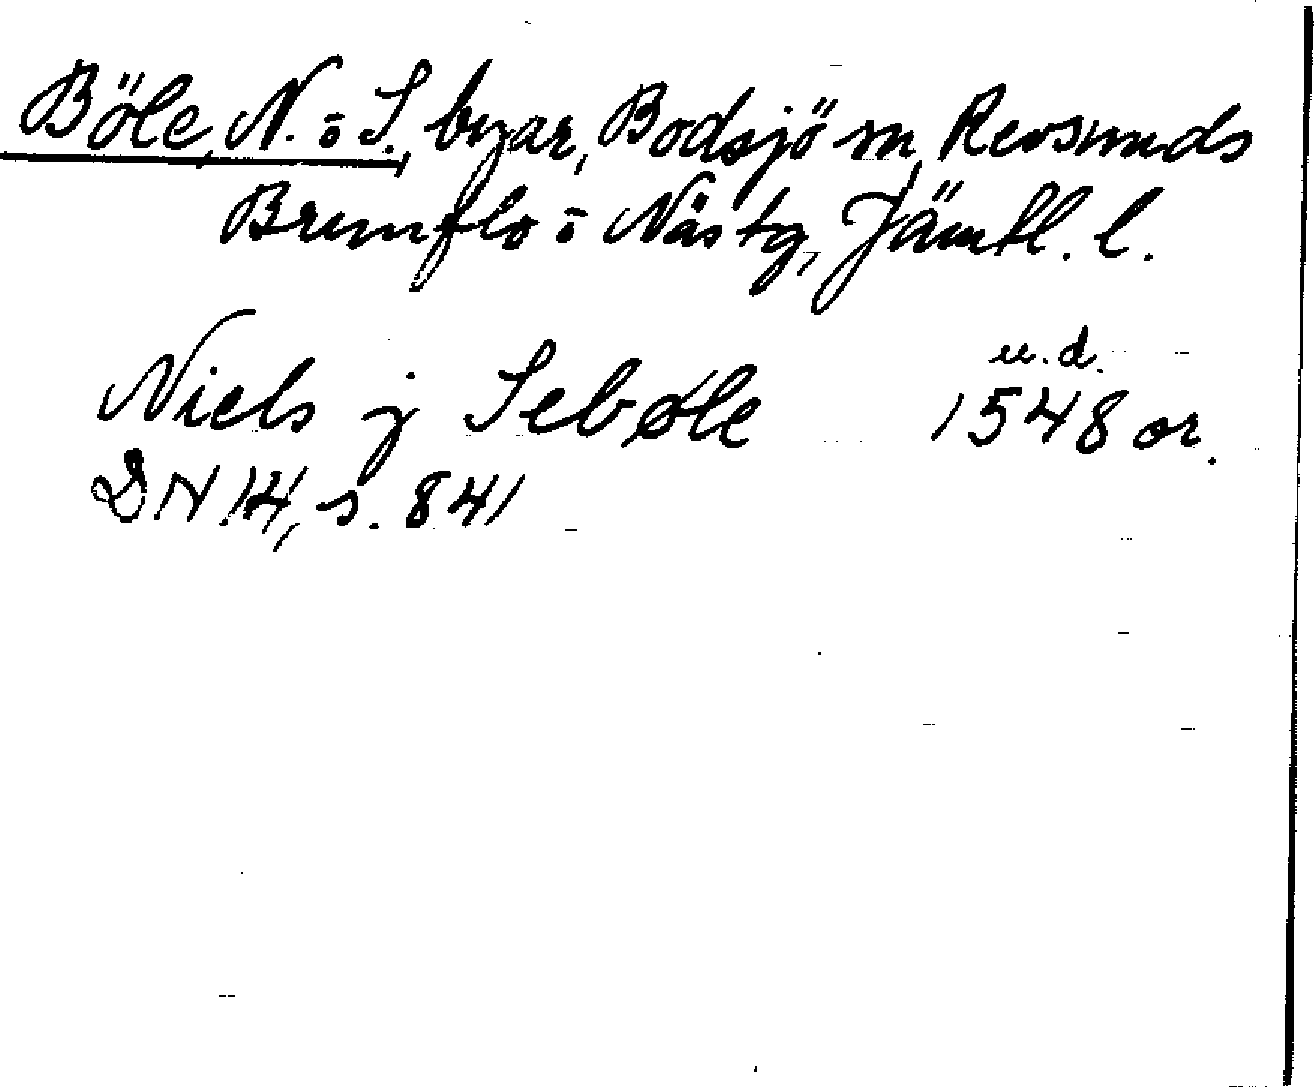 Böle, N. o S., byar, Bodsjö sn, Revsunds
Brunflo o Näs tg, Jämtl. l.
u.d.
Niels j Sebøle 1548 or.
DN 14, s. 841